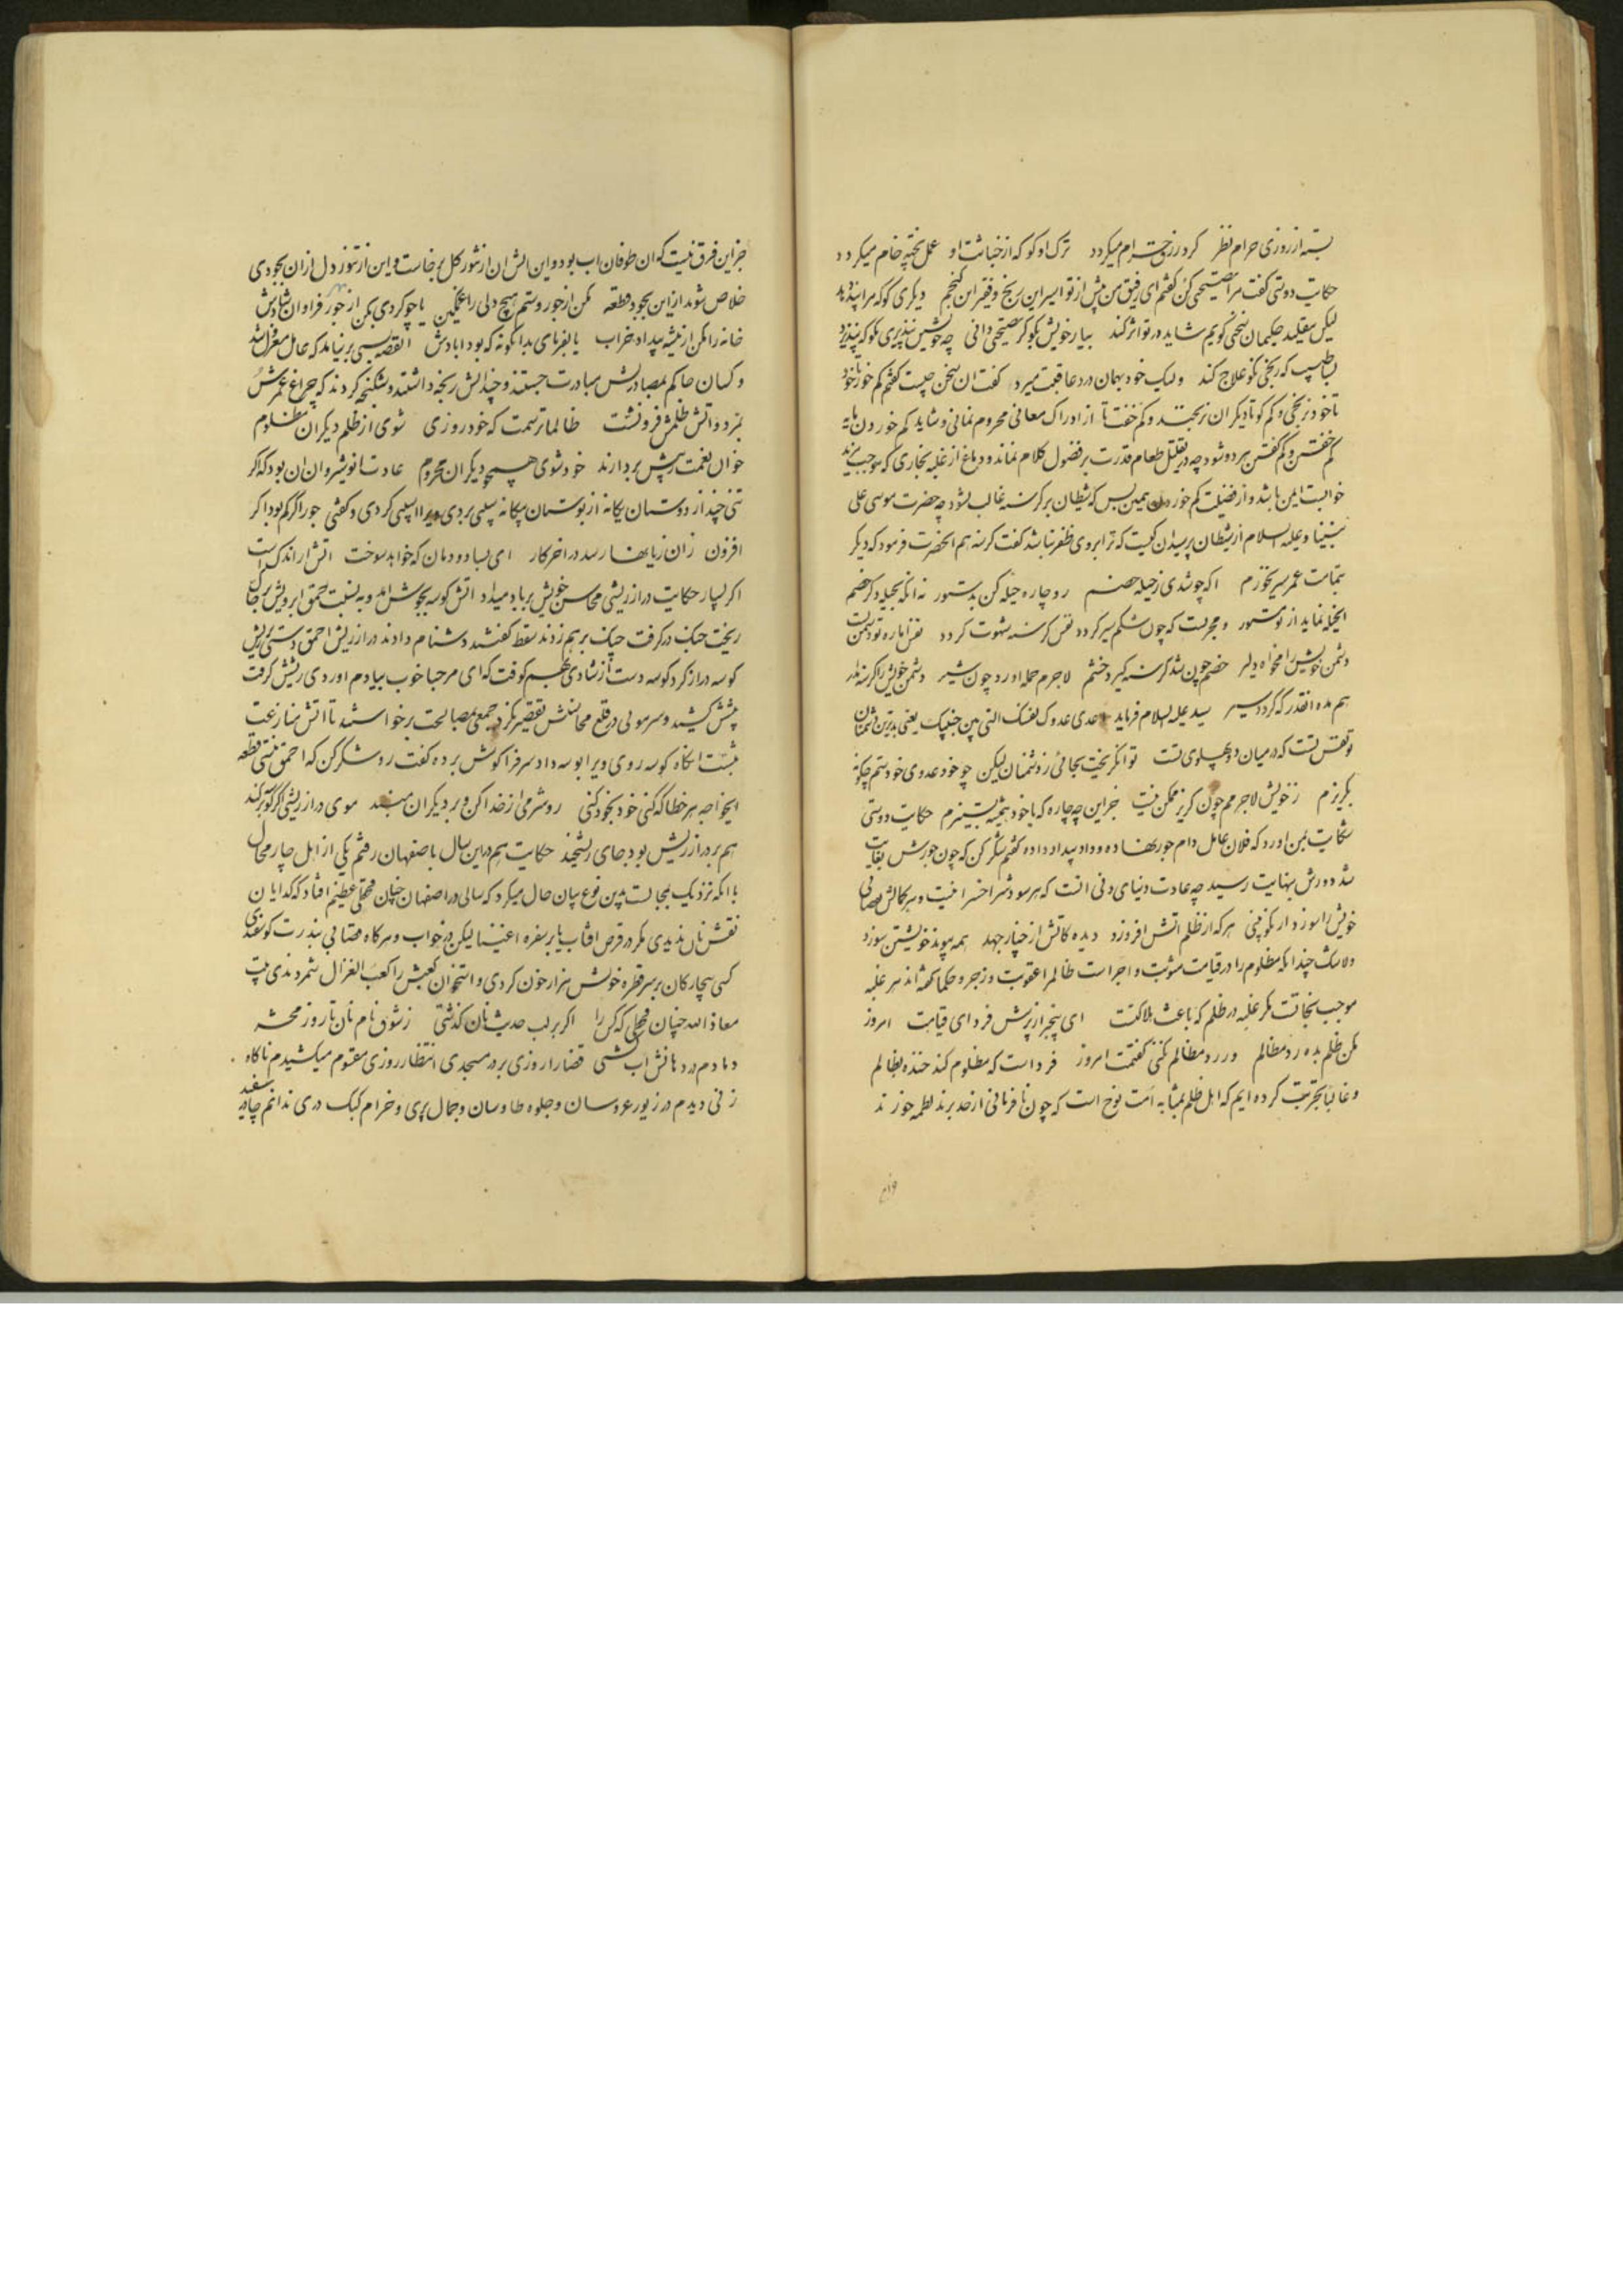 بسته از روزی حرام نظر کرد رزقت حرام میکردد ترک او کو که از خباثت او عمل پخته خام میکردد
حکایت دوستی گفت مرا نصیحتی کن گفتم ای رفیق من پیش از تو اسیر این رنج و فقیر این گنجم دیگری کو که مرا پند دهد
لیکن بتقلید حکیمان سخنی گویم شاید در تو اثر کند بیا خویش بگو گر نصیحتی دانی چه خویش نپذیری بگو که بپذیرد
بسا طبیب که رنجی نکو علاج کند ولیک خود بهمان درد عاقبت میرد گفت آن سخن چیست گفتم کم خور تا خود
نرنجی و کم گو تا دیگران نرنجند و کم خفت تا از ادراک معانی محروم نمانی و شاید کم خوردن مایه
کم خفتن و کم گفتن هر دو شود چه در تقلیل طعام قدرت بر فضول کلام نماند و دماغ از غلبه بخاری که موجب مزید
خوابست ایمن باشد و از فضیلت کم خوردن همین بس که شیطان بر گرسنه غالب نشود چه حضرت موسی علی
نبینا و علیه السلام از شیطان پرسیدان کیست که ترا بر وی ظفر نباشد گفت گرسنه هم آنحضرت فرمود که دیگر
بتمامت عمر سیر نخورم اگر چو شدی ز حیله خصم رو چاره حیله کن بدستور نه آنکه بحیله دگر خصم
آنحیله نماید از تو مستور و مجربست که چون شکم سیر گردد نفس گرسنه شهوت گردد نفس اماره تو دشمن تست
دشمن خویش را مخواه دلیر خصم چون شد گرسنه گیرد خشم لاجرم حمله آورد چون شیر دشمن خویش را گرسنه مدار
هم مده آنقدر که گردد سیر سید علیه السلام فرماید اعدی عدوک نفسک التی بین جنبیک یعنی بدترین دشمنان
تو نفس تست که در میان دو پهلوی تست توانگر نخت بجائی ز دشمنان لیکن چو خود عدوی خودستم چگونه
بگریزم ز خویش لاجرمم چون گریز ممکن نیست جز این چه چاره که با خود همیشه بستیزم حکایت دوستی
شکایت بمن آورد که فلان عامل دام جور نهاده و داد بیداد داده گفتم شکر کن که چون جورش بغایت
شد دورش بنهایت رسید چه عادت دنیای دنی آنست که هر سودش را خسرانیست و هر کمالش نقصانی
خویش را سوزد ار نکو بینی هر که از ظلم آتش افروزد دیده کآتش از چنار جهد هم به پیوند خویشتن سوزد
ولاشک چندانکه مظلوم را در قیامت مثوبت و اجر است ظالم را عقوبت و زجر و حکما گفته اند هر غلبه
موجب نجاتست مگر غلبه در ظلم که باعث هلاکتست ای بیخبر از پرسش فردای قیامت امروز
مکن ظلم بده رد مظالم ور رد مظالم نکنی گفتمت امروز فرداست که مظلوم کند خنده بظالم
و غالبا تجربت کرده ایم که اهل ظلم بمثابه امت نوح است که چون نافرمانی از حد برند لطمه خورند
جز این فرق نیست که آن طوفان آب بود و این آتش آن از تنور گل برخاست و این از تنور دل از آن بجودی
خلاص شوند از این بجود قطعه مکن از جور و ستم هیچ دلی را غمگین یا چو کردی بکن از جود فراوان شادش
خانه را مکن از تیشه بیداد خراب یا بفرمای بدانگونه که بود آبادش القصه بسی بر نیامد که عامل معزول شد
و کسان حاکم بمصادرتش مبادرت جستند و چندانش رنجه داشتند و شکنجه کردند که چراغ عمرش
بمرد و آتش ظلمش فرو نشست ظالما ترسمت که خود روزی شوی از ظلم دیگران مظلوم
خوان نعمت ز پیش بردارند خود شوی همچو دیگران محروم عادت انوشیروان آن بود که اگر
تنی چند از دوستان یگانه از بوستان بیگانه سیبی بردی ویرا آسیبی کردی و گفتی جور اگر کم بود اگر
افزون زان زیانها رسد در آخر کار ای بسا دودمان که خواهد سوخت آتش ار اندکست
اگر بسیار حکایت دراز ریشی محاسن خویش بر باد میداد آتش کوسه بجوش آمد و به نسبت حمق آبرویش بر خاک
ریخت جنگ در گرفت چنگ بر هم زدند سقط گفتند و دشنام دادند دراز ریش احمق دستی بریش
کوسه دراز کرد کوسه دست از شادی بهم کوفت که ای مرحبا خوب بیادم آوردی ریشش گرفت
پیشش کشید و سر موئی در قلع محاسنش تقصیر نکرد جمعی بمصالحت برخواستند تا آتش منازعت
نشست آنگاه کوسه روی ویرا بوسه داد سر فرا گوش برده گفت رو شکر کن که احمق نیستی قطعه
ایخواجه هر خطا که کنی خود بخود کنی رو شرمی از خدا کن و بر دیگران مبند موی دراز ریشی اگر کوسه برکند
هم بر دراز ریش بود جای ریشخند حکایت هم در این سال باصفهان رفتم یکی از اهل چارمحال
با آنکه نزدیک بمحالست بدین نوع بیان حال میکرد که سالی در اصفهان چنان قحطی عظیم افتاد که گدایان
نقش نان ندیدی مگر در قرص آفتاب یا بر سفره اغنیا لیکن در خواب و هرگاه قصابی بندرت گوسفندی
کشتی بیچارگان بر سر قطره خونش هزار خون کردی و استخوان کعبش را کعب الغزال شمردندی بیت
معاذ الله چنان قحطی که کس را اگر بر لب حدیث نان گذشتی ز شوق نام نان تا روز محشر
دمادم در دهانش آب گشتی قضا را روزی بر در مسجدی انتظار روزی مقسوم میکشیدم ناگاه
زنی دیدم در زیور عروسان و جلوه طاوسان و جمال پری و خرام کبک دری ندانم چادر سفید